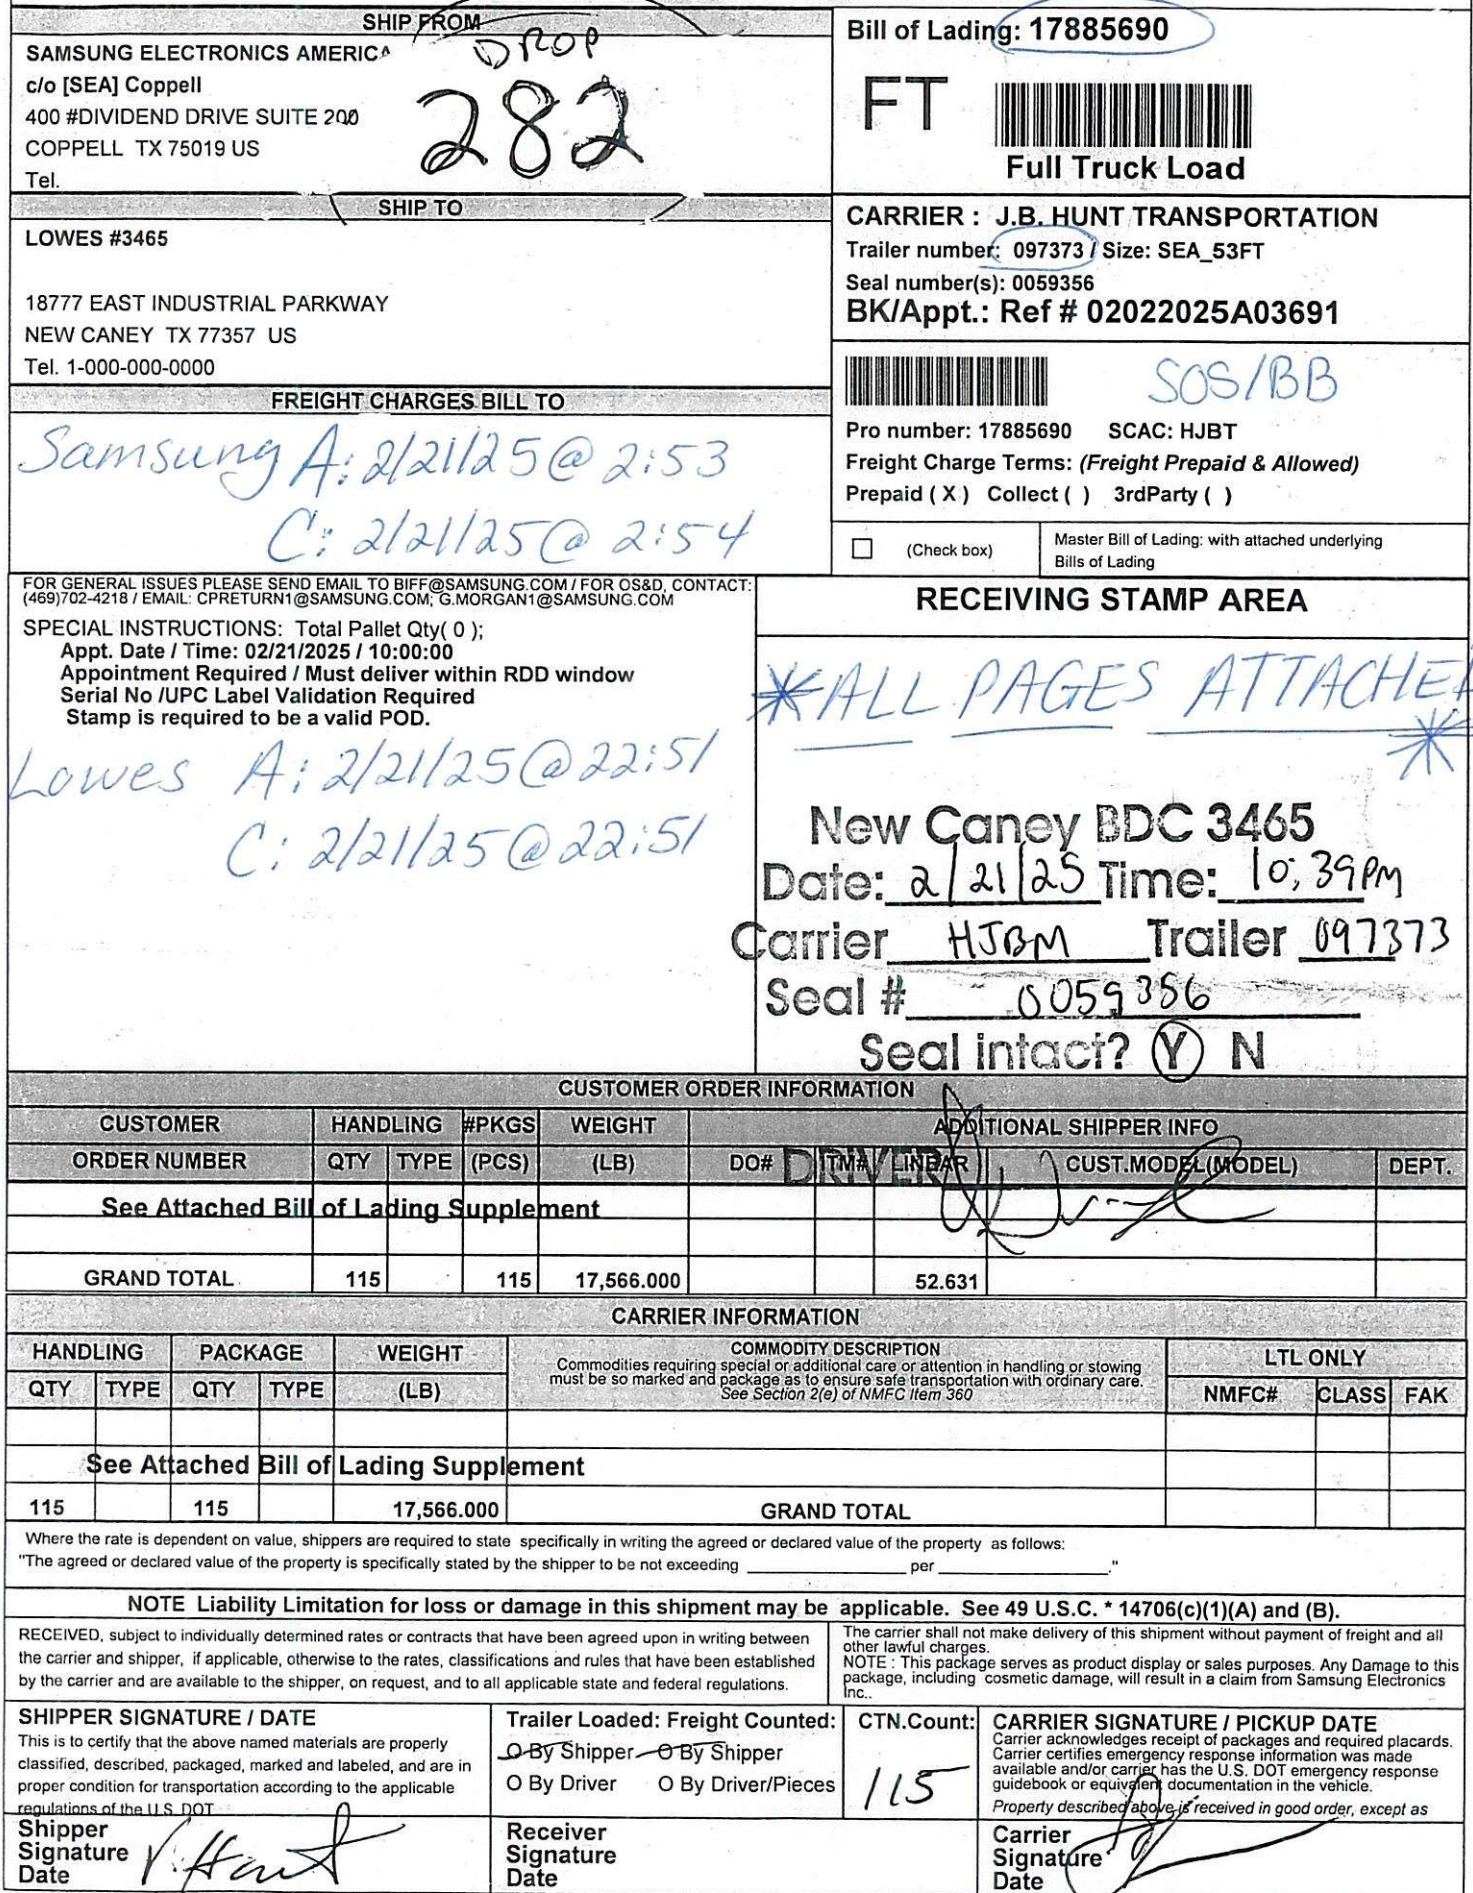 SHIP FROM
DROP
282
SAMSUNG ELECTRONICS AMERICA
c/o [SEA] Coppell
400 #DIVIDEND DRIVE SUITE 200
COPPELL TX 75019 US
Tel.
Bill of Lading: 17885690
FT
Full Truck Load
SHIP TO
LOWES #3465
18777 EAST INDUSTRIAL PARKWAY
NEW CANEY TX 77357 US
Tel. 1-000-000-0000
CARRIER : J.B. HUNT TRANSPORTATION
Trailer number: 097373 / Size: SEA_53FT
Seal number(s): 0059356
BK/Appt.: Ref # 02022025A03691
SOS/BB
Pro number: 17885690 SCAC: HJBT
Freight Charge Terms: (Freight Prepaid & Allowed)
Prepaid ( X ) Collect ( ) 3rdParty ( )
(Check box)
Master Bill of Lading: with attached underlying
Bills of Lading
FREIGHT CHARGES BILL TO
Samsung A: 2/21/25 @ 2:53
C: 2/21/25 @ 2:54
FOR GENERAL ISSUES PLEASE SEND EMAIL TO BIFF@SAMSUNG.COM / FOR OS&D, CONTACT:
(469)702-4218 / EMAIL: CPRETURN1@SAMSUNG.COM; G.MORGAN1@SAMSUNG.COM
SPECIAL INSTRUCTIONS: Total Pallet Qty( 0 );
Appt. Date / Time: 02/21/2025 / 10:00:00
Appointment Required / Must deliver within RDD window
Serial No /UPC Label Validation Required
Stamp is required to be a valid POD.
Lowes A: 2/21/25 @ 22:51
C: 2/21/25 @ 22:51
RECEIVING STAMP AREA
*ALL PAGES ATTACHED*
New Caney BDC 3465
Date: 2/21/25 Time: 10:39PM
Carrier HJBM Trailer 097373
Seal # 0059356
Seal intact? Y N
DRIVER
CUSTOMER ORDER INFORMATION
CUSTOMER HANDLING #PKGS WEIGHT ADDITIONAL SHIPPER INFO
ORDER NUMBER QTY TYPE (PCS) (LB) DO# ITM# LINEAR CUST.MODEL(MODEL) DEPT.
See Attached Bill of Lading Supplement
GRAND TOTAL 115 115 17,566.000 52.631
CARRIER INFORMATION
HANDLING PACKAGE WEIGHT COMMODITY DESCRIPTION LTL ONLY
Commodities requiring special or additional care or attention in handling or stowing
must be so marked and package as to ensure safe transportation with ordinary care.
See Section 2(e) of NMFC Item 360
QTY TYPE QTY TYPE (LB) NMFC# CLASS FAK
See Attached Bill of Lading Supplement
115 115 17,566.000 GRAND TOTAL
Where the rate is dependent on value, shippers are required to state specifically in writing the agreed or declared value of the property as follows:
"The agreed or declared value of the property is specifically stated by the shipper to be not exceeding ____________ per ____________."
NOTE Liability Limitation for loss or damage in this shipment may be applicable. See 49 U.S.C. * 14706(c)(1)(A) and (B).
RECEIVED, subject to individually determined rates or contracts that have been agreed upon in writing between
the carrier and shipper, if applicable, otherwise to the rates, classifications and rules that have been established
by the carrier and are available to the shipper, on request, and to all applicable state and federal regulations.
The carrier shall not make delivery of this shipment without payment of freight and all
other lawful charges.
NOTE : This package serves as product display or sales purposes. Any Damage to this
package, including cosmetic damage, will result in a claim from Samsung Electronics
Inc..
SHIPPER SIGNATURE / DATE
This is to certify that the above named materials are properly
classified, described, packaged, marked and labeled, and are in
proper condition for transportation according to the applicable
regulations of the U.S. DOT
Shipper
Signature
Date
Trailer Loaded: Freight Counted:
O By Shipper O By Shipper
O By Driver O By Driver/Pieces
CTN.Count:
115
Receiver
Signature
Date
CARRIER SIGNATURE / PICKUP DATE
Carrier acknowledges receipt of packages and required placards.
Carrier certifies emergency response information was made
available and/or carrier has the U.S. DOT emergency response
guidebook or equivalent documentation in the vehicle.
Property described above is received in good order, except as
Carrier
Signature
Date